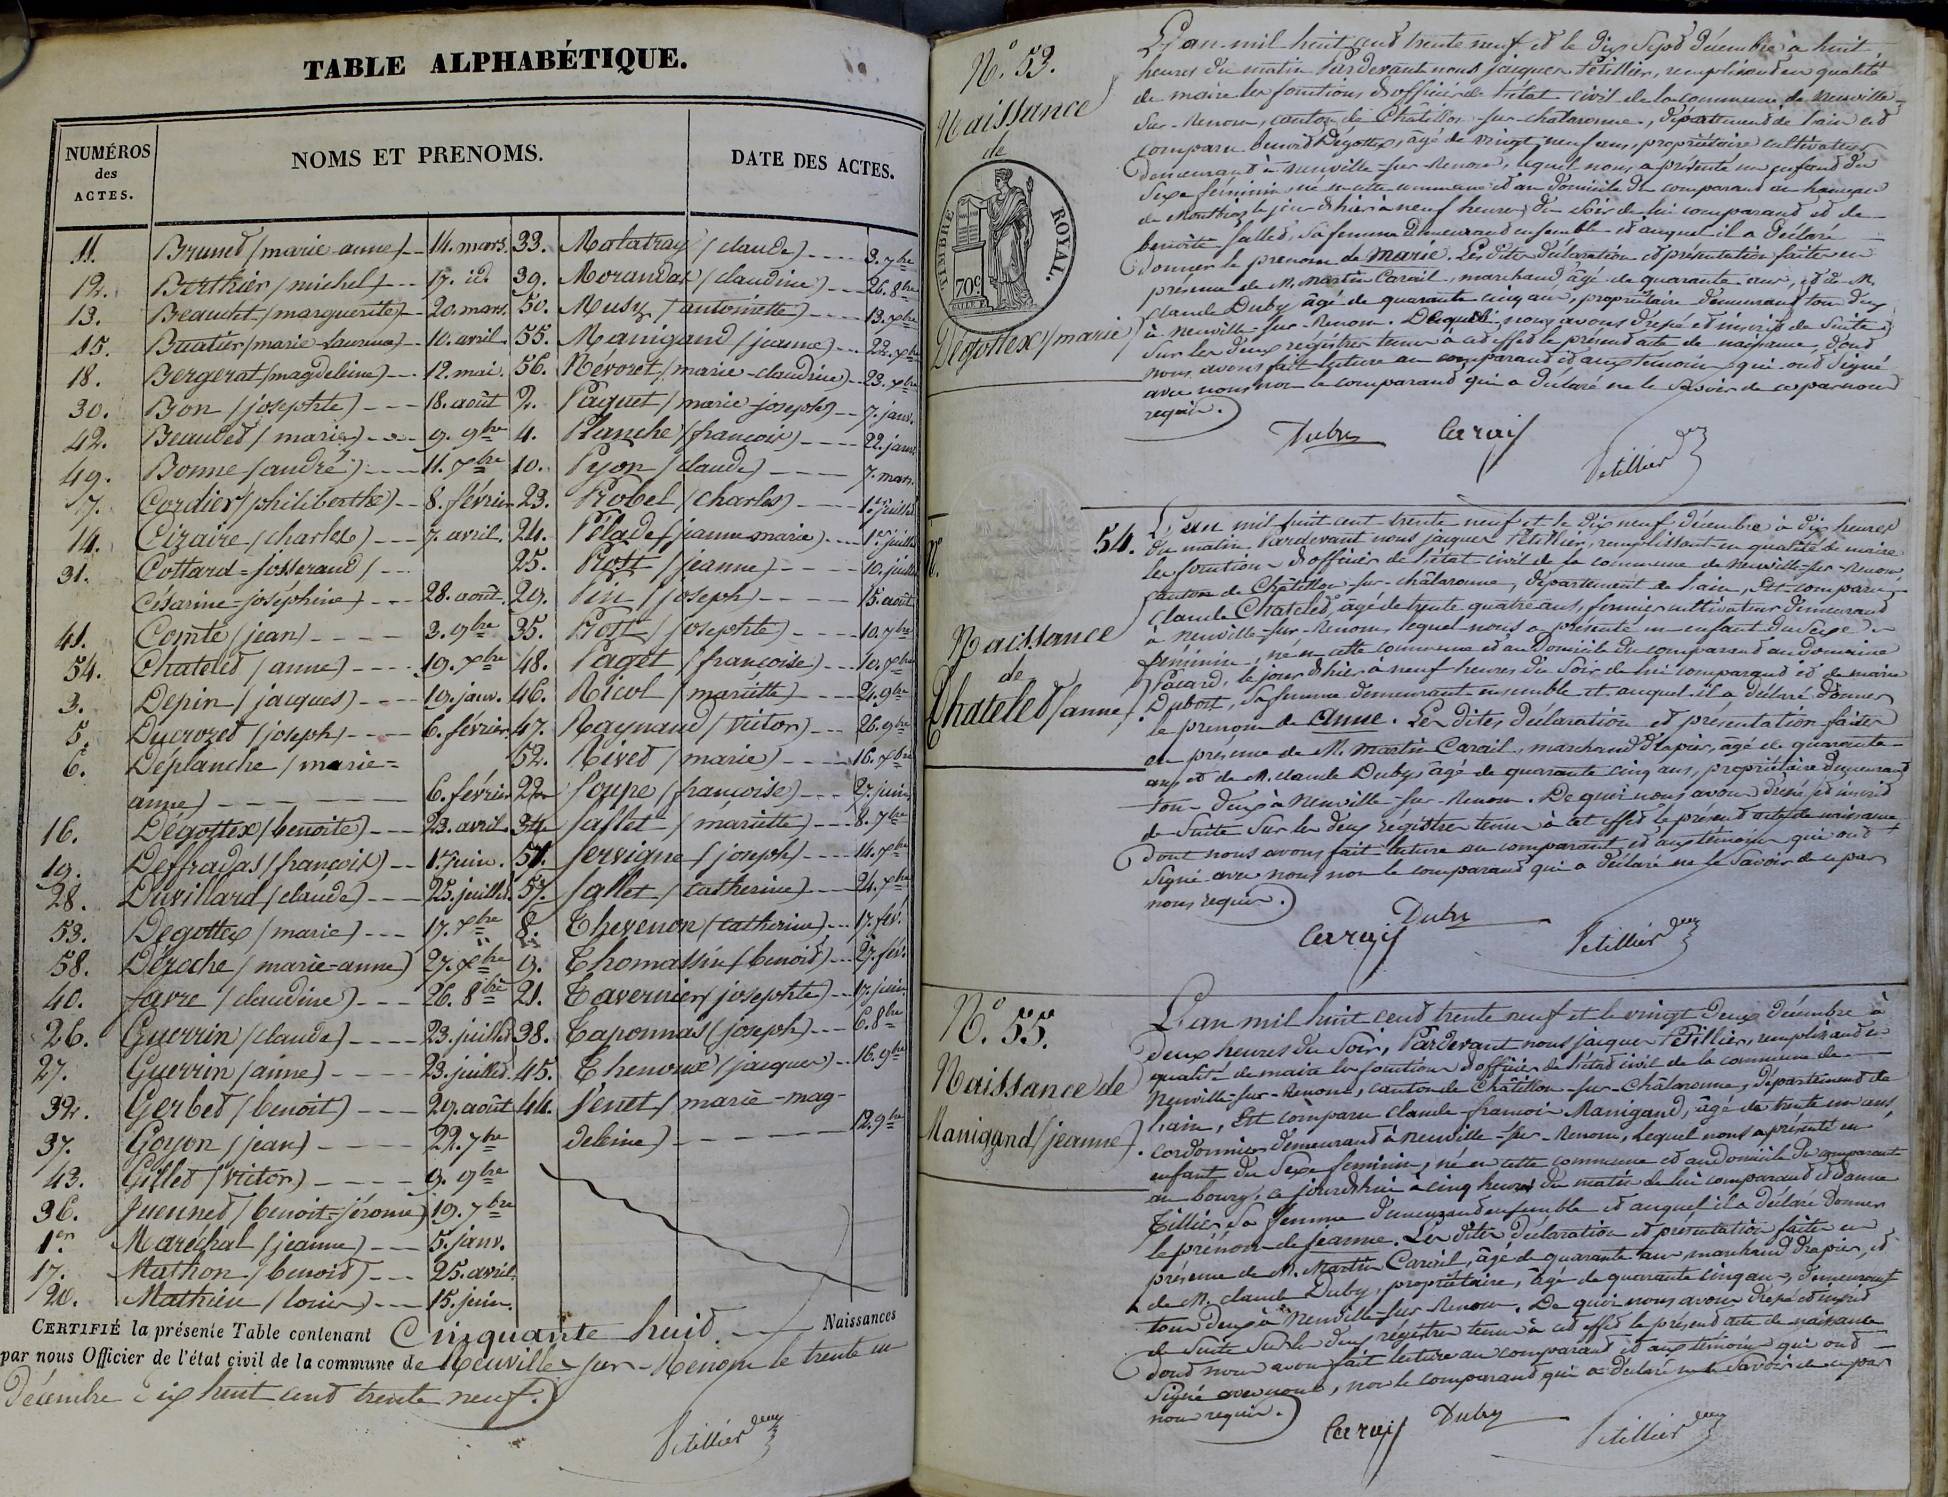 TABLE ALPHABÉTIQUE.
NUMÉROS des ACTES.
NOMS ET PRENOMS.
DATE DES ACTES.
11. Brunet (marie anne) 14. mars. 33. Malatray (claude) 3. 7bre
12. Berthier (michel) 17. id. 39. Morandat (claudine) 26. 8bre
13. Beaudet (marguerite) 20. mars. 50. Musy (antoinette) 13. xbre
15. Buatier (marie Laurence) 10. avril. 55. Manigand (jeanne) 22. xbre
18. Bergerat (magdeleine) 12. mai. 56. Névoret (marie-claudine) 23. xbre
30. Byon (josephte) 18. août 2. Paquet (marie joseph) 7. janv.
42. Beauded (marie) 9. 9bre 4. Planche (françois) 22. janv.
49. Bonne (andré) 11. xbre 10. Pyon (claude) 7. mars.
7. Cordier (philiberthe) 8. février 23. Probel (charles) 1er juillet
14. Cizaire (charles) 7. avril. 24. Pélade (jeanne marie) 1er juillet
31. Cottard=josserand (
25. Prost (jeanne) 10. juillet
césarine=joséphine) 28. août. 29. Pin (joseph) 15. août
41. Comte (jean) 3. 9bre 35. Prost (josephte) 10. 7bre
54. Chateled (anne) 19. xbre 48. Paget (françoise) 10. xbre
3. Depin (jacques) 19. janv. 46. Nicol (mariette) 24. 9bre
5. Ducrozed (joseph) 6. février 47. Raynaud (victor) 26. 9bre
6. Déplanche (marie=
52. Rived (marie) 16. xbre
anne) 6. février 22. Soupe (françoise) 27. juin
16. Dégottex (benoite) 23. avril. 34. Sallet (mariette) 8. 7bre
19. Deffradas (françois) 1er juin. 51. Servigne (joseph) 14. xbre
28. Duvillard (claude) 25. juillet. 57. Sallet (catherine) 24. xbre
53. Dégottex (marie) 17. xbre 8. Thevenon (catherine) 17. fév.
58. Déroche (marie=anne) 27. xbre 9. Thomassin (benoid) 27. fév.
40. favre (claudine) 26. 8bre 21. Tavernier (josephte) 17. juin.
26. Guerrin (claude) 23. juillet 38. Taponnas (joseph) 6. 8bre
27. Guerrin (anne) 23. juillet. 45. Thenoux (jacques) 16. 9bre
32. Gerbed (benoit) 29. août 44. Venet (marie-mag-
37. Goyon (jean) 22. 7bre deleine) 12. 9bre
43. Gilled (victor) 9. 9bre
36. Juenned (benoit=jérome) 19. 7bre
1er. Maréchal (jeanne) 5. janv.
17. Mathon (benoid) 25. avril.
20. Mathieu (louis) 15. juin.
CERTIFIÉ la présente Table contenant Cinquante huid. Naissances
par nous Officier de l'état civil de la commune de Neuville-sur-Renom le trente un
Décembre Dix huit cend trente neuf.
Pétillier
N° 53.
Naissance
de
TIMBRE ROYAL.
70c
Dégottex (marie)
L'an mil huit cend trente neuf et le dix Sept décembre à huit
heures du matin Pardevant nous jacques Pétillier, remplissand en qualité
de maire les fonctions d'officier de l'état civil de la commune de Neuville-
sur-Renom, canton de Châtillon-sur-chalaronne, département de l'ain est
comparu benoid Dégottex, âgé de vingt neuf ans, propriétaire cultivateur
demeurand à neuville-sur-Renom, lequel nous a présenté un enfand du
Sexe féminin né en cette commune et au domicile du comparand au hameau
de Monthioz le jour d'hier à neuf heures du soir de lui comparand et de
benoite Salled, sa femme demeurand ensemble et auquel il a déclaré
donner le prenom de Marie. Les dites déclaration et présentation faites en
présence de M. Martin Carail, marchand âgé de quarante ans, et de M.
claude Duby âgé de quarante cinq ans, propriétaire demeurand tous deux
à neuville-sur-Renom. De quoi nous avons drepé et inscrit de suite
sur les deux registres tenus à cet effed le présend acte de naissance, dond
nous avons fait lecture au comparand et aux témoins qui ond signé
avec nous non le comparand qui a déclaré ne le savoir de ce par nous
requis.
Duby Carail
Pétillier
N° 54.
Naissance
de
Chateled (anne)
L'an mil huit cent trente neuf et le dix neuf décembre à dix heures
du matin Pardevant nous jacques Pétillier, remplissant en qualité de maire
les fonctions d'officier de l'état civil de la commune de Neuville-sur-Renom
canton de Châtillon-sur-châlaronne, département de l'ain, Est comparu
claude Chateled, agé de trente quatre ans, fermier cultivateur demeurand
à neuville-sur-Renom, lequel nous a présenté un enfant du Sexe
féminin, né en cette commune et au Domicile du comparand au domaine
Pacard, le jour d'hier à neuf heures du soir de lui comparand et de marie
Dubost, sa femme demeurant ensemble et auquel il a déclaré donner
le prenom de Anne. Les dites déclaration et présentation faites
en présence de M. Martin Carail, marchand drapier, âgé de quarante
ans et de M. claude Duby âgé de quarante cinq ans, propriétaire demeurand
tous deux à Neuville-sur-Renom. De quoi nous avons drepé et inscrit
de suite sur les deux régistres tenus à cet effed le présend acte de naissance
dont nous avons fait lecture au comparant et aux témoins qui ont
signé avec nous non le comparand qui a déclaré ne le savoir de ce par
nous requis.
Carail Duby
Pétillier
N° 55.
Naissance de
Manigand (jeanne).
L'an mil huit cend trente neuf et le vingt Deux décembre à
deux heures du Soir, Pardevant nous jacques Pétillier, remplissand en
qualité de maire les fonctions d'officier de l'état civil de la commune de
Neuville-sur-Renom, canton de Châtillon-sur-Châlaronne, département de
l'ain, Est comparu claude-françois Manigand, âgé de trente un ans,
cordonnier demeurand à neuville-sur-Renom, lequel nous a présenté un
enfant du Sexe feminin, né en cette commune et au domicile du comparant
au bourg, ce jourd'hui à cinq heures du matin de lui comparand et d'anne
Tillier, sa femme demeurand ensemble et auquel il a déclaré donner
le prénom de Jeanne. Les dites déclaration et présentation faites en
présence de M. Martin Carail, âgé de quarante ans marchand drapier, et
de M. claude Duby, propriétaire, âgé de quarante cinq ans, demeurant
tous deux à Neuville-sur-Renom. De quoi nous avons drepé et inscrit
de suite sur les deux régistres tenus à cet effed le présend acte de naissance
dond nous avons fait lecture au comparand et aux témoins qui ond
signé avec nous, non le comparand qui a déclaré ne le savoir de ce par
nous requis.
Carail Duby
Pétillier